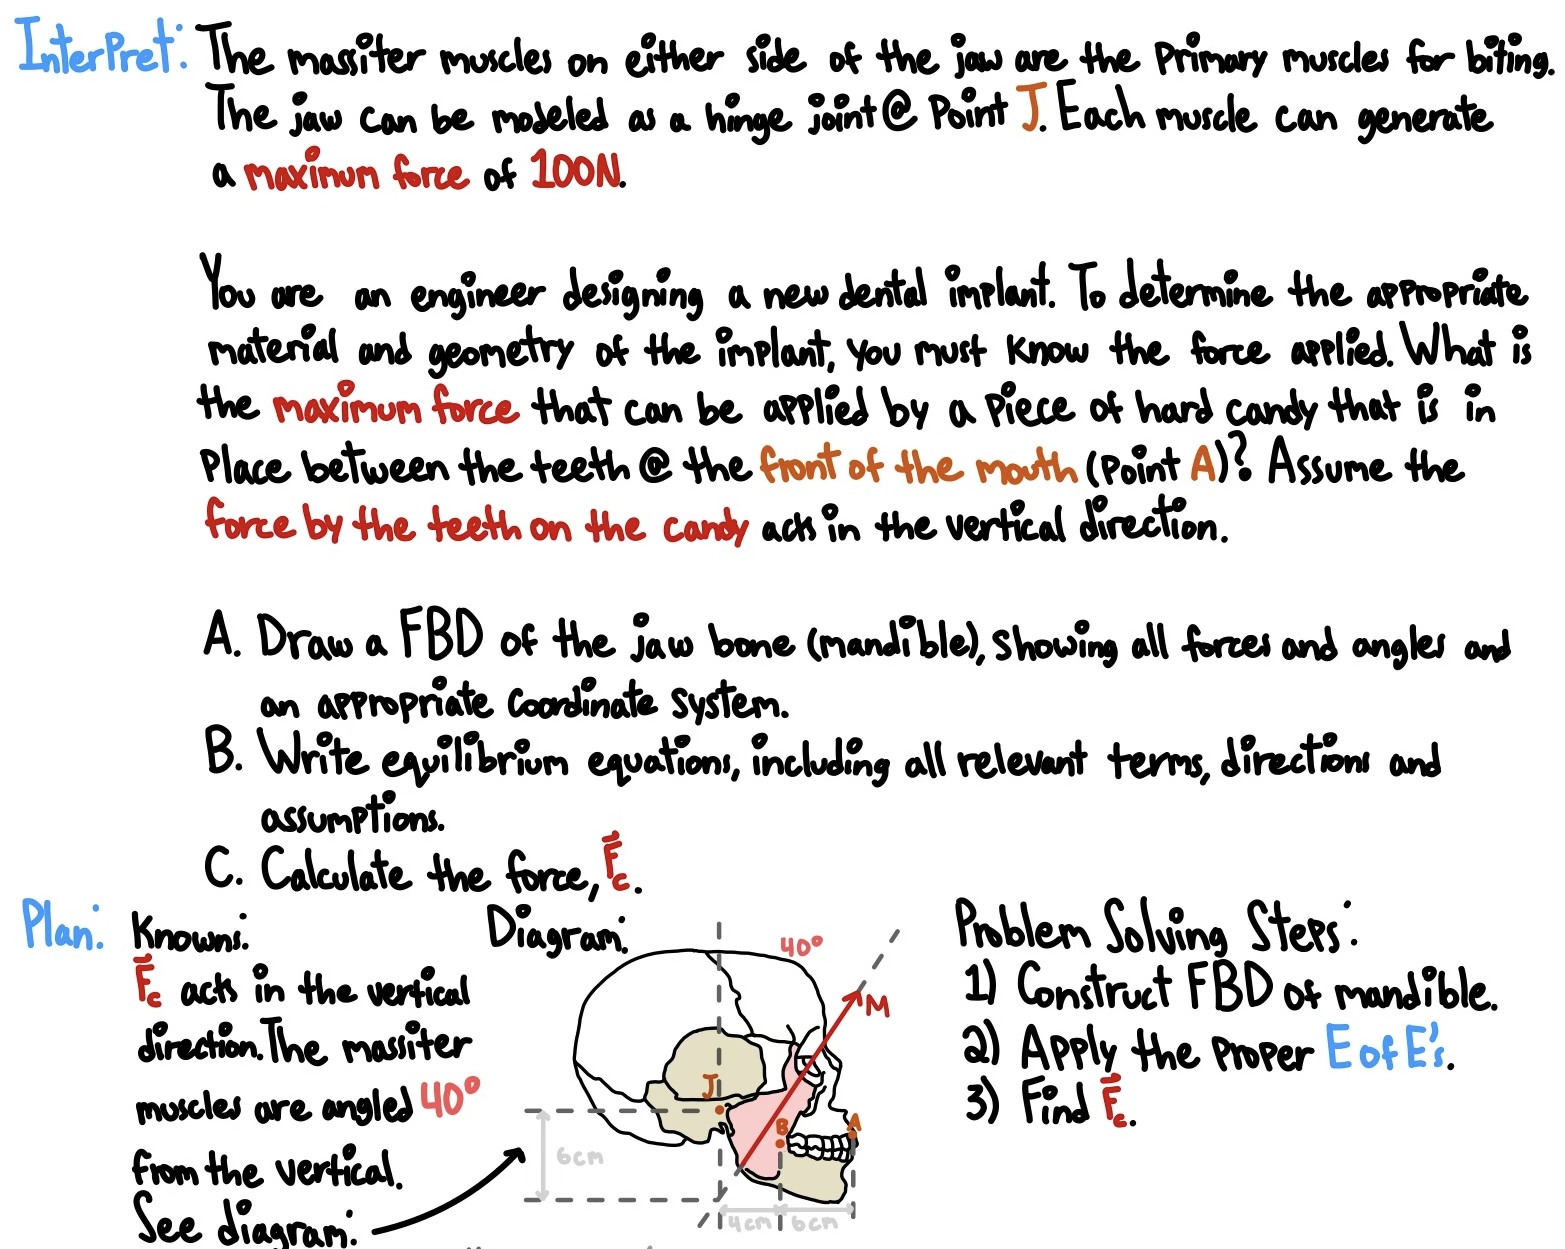 Interpret: The massiter muscles on either side of the jaw are the Primary muscles for biting.
The jaw can be modeled as a hinge joint @ Point J. Each muscle can generate
a maximum force of 100N.
You are an engineer designing a new dental implant. To determine the appropriate
material and geometry of the implant, you must know the force applied. What is
the maximum force that can be applied by a piece of hard candy that is in
Place between the teeth @ the front of the mouth (Point A)? Assume the
force by the teeth on the candy acts in the vertical direction.
A. Draw a FBD of the jaw bone (mandible), showing all forces and angles and
an appropriate coordinate system.
B. Write equilibrium equations, including all relevant terms, directions and
assumptions.
C. Calculate the force, F̄c.
Plan: Knowns:
F̄c acts in the vertical
direction. The massiter
muscles are angled 40°
from the vertical.
See diagram:
Diagram:
40°
M
J
B
A
6cm
4cm
6cm
Problem Solving Steps:
1) Construct FBD of mandible.
2) Apply the proper E of E's.
3) Find F̄c.